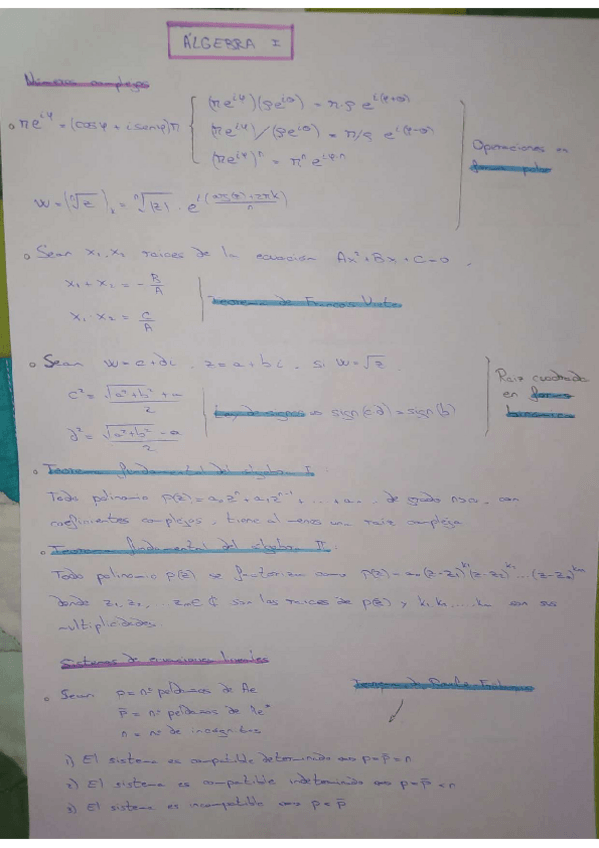 ÁLGEBRA I
Números complejos
re^{iφ} = (cosφ + i senφ)r
(re^{iφ})(ρe^{iθ}) = r·ρ e^{i(φ+θ)}
(re^{iφ})/(ρe^{iθ}) = r/ρ e^{i(φ-θ)}
(re^{iφ})^n = r^n e^{iφ·n}
Operaciones en
forma polar
w = (ⁿ√z)_k = ⁿ√|z| · e^{i(arg(z)+2πk)/n}
Sean x₁, x₂ raíces de la ecuación Ax² + Bx + C = 0.
x₁ + x₂ = -B/A
x₁ · x₂ = C/A
Teorema de
Sean w = c + di, z = a + bi. si w = √z.
c² = (√(a²+b²) + a)/2
d² = (√(a²+b²) - a)/2
Ley de signos ⇒ sign(cd) = sign(b)
Raíz cuadrada
en forma
binómica
Teorema fundamental del álgebra I
Todo polinomio p(z) = a₀zⁿ + a₁zⁿ⁻¹ + ... + aₙ, de grado n>0, con
coeficientes complejos, tiene al menos una raíz compleja
Teorema fundamental del álgebra II:
Todo polinomio p(z) se factoriza como p(z) = a₀(z-z₁)^{k₁}(z-z₂)^{k₂}...(z-zₘ)^{kₘ}
donde z₁, z₂, ... zₘ ∈ ℂ son las raíces de p(z) y k₁, k₂, ... kₘ son sus
multiplicidades.
Sistemas de ecuaciones lineales
Sean p = nº peldaños de Ae
p̄ = nº peldaños de Ae*
n = nº de incógnitas
1) El sistema es compatible determinado ⇔ p = p̄ = n
2) El sistema es compatible indetermindo ⇔ p = p̄ < n
3) El sistema es incompatible ⇔ p < p̄